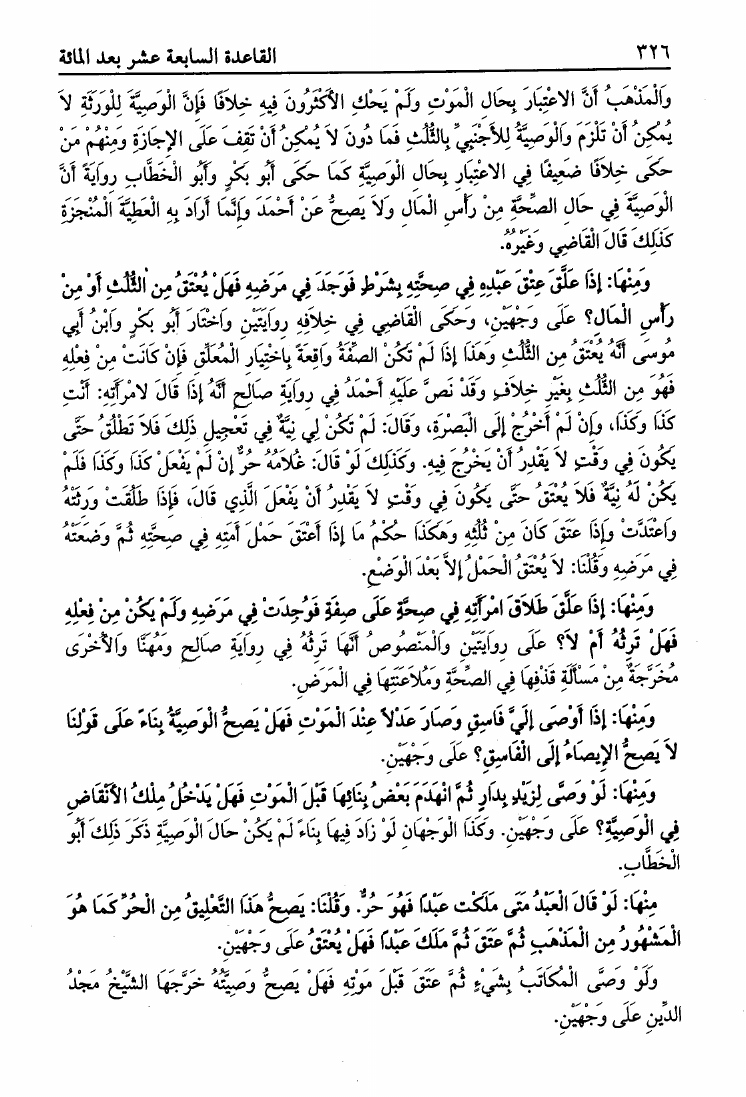 ٣٢٦ القاعدة السابعة عشر بعد المائة
وَالْمَذْهَبُ أَنَّ الاعْتِبَارَ بِحَالِ الْمَوْتِ وَلَمْ يَحْكِ الأَكْثَرُونَ فِيهِ خِلاَفًا فَإِنَّ الْوَصِيَّةَ لِلْوَرَثَةِ لاَ
يُمْكِنُ أَنْ تَلْزَمَ وَالْوَصِيَّةُ لِلأَجْنَبِيِّ بِالثُّلُثِ فَمَا دُونَ لاَ يُمْكِنُ أَنْ تَقِفَ عَلَى الإِجَازَةِ وَمِنْهُمْ مَنْ
حَكَى خِلاَفًا ضَعِيفًا فِي الاعْتِبَارِ بِحَالِ الْوَصِيَّةِ كَمَا حَكَى أَبُو بَكْرٍ وَأَبُو الْخَطَّابِ رِوَايَةً أَنَّ
الْوَصِيَّةَ فِي حَالِ الصِّحَّةِ مِنْ رَأْسِ الْمَالِ وَلاَ يَصِحُّ عَنْ أَحْمَدَ وَإِنَّمَا أَرَادَ بِهِ الْعَطِيَّةَ الْمُنْجَزَةَ
كَذَلِكَ قَالَ الْقَاضِي وَغَيْرُهُ.
وَمِنْهَا: إِذَا عَلَّقَ عِتْقَ عَبْدِهِ فِي صِحَّتِهِ بِشَرْطٍ فَوَجَدَ فِي مَرَضِهِ فَهَلْ يُعْتَقُ مِنَ الثُّلُثِ أَوْ مِنْ
رَأْسِ الْمَالِ؟ عَلَى وَجْهَيْنِ، وَحَكَى الْقَاضِي فِي خِلاَفِهِ رِوَايَتَيْنِ وَاخْتَارَ أَبُو بَكْرٍ وَابْنُ أَبِي
مُوسَى أَنَّهُ يُعْتَقُ مِنَ الثُّلُثِ وَهَذَا إِذَا لَمْ تَكُنْ الصِّفَةُ وَاقِعَةً بِاخْتِيَارِ الْمُعَلِّقِ فَإِنْ كَانَتْ مِنْ فِعْلِهِ
فَهُوَ مِنَ الثُّلُثِ بِغَيْرِ خِلاَفٍ وَقَدْ نَصَّ عَلَيْهِ أَحْمَدُ فِي رِوَايَةِ صَالِحٍ أَنَّهُ إِذَا قَالَ لامْرَأَتِهِ: أَنْتِ
كَذَا وَكَذَا، وَإِنْ لَمْ أَخْرُجْ إِلَى الْبَصْرَةِ، وَقَالَ: لَمْ تَكُنْ لِي نِيَّةٌ فِي تَعْجِيلِ ذَلِكَ فَلاَ تَطْلُقُ حَتَّى
يَكُونَ فِي وَقْتٍ لاَ يَقْدِرُ أَنْ يَخْرُجَ فِيهِ. وَكَذَلِكَ لَوْ قَالَ: غُلاَمُهُ حُرٌّ إِنْ لَمْ يَفْعَلْ كَذَا وَكَذَا فَلَمْ
يَكُنْ لَهُ نِيَّةٌ فَلاَ يُعْتَقُ حَتَّى يَكُونَ فِي وَقْتٍ لاَ يَقْدِرُ أَنْ يَفْعَلَ الَّذِي قَالَ، فَإِذَا طَلُقَتْ وَرِثَتْهُ
وَاعْتَدَّتْ وَإِذَا عَتَقَ كَانَ مِنْ ثُلُثِهِ وَهَكَذَا حُكْمُ مَا إِذَا أَعْتَقَ حَمْلَ أَمَتِهِ فِي صِحَّتِهِ ثُمَّ وَضَعَتْهُ
فِي مَرَضِهِ وَقُلْنَا: لاَ يُعْتَقُ الْحَمْلُ إِلاَّ بَعْدَ الْوَضْعِ.
وَمِنْهَا: إِذَا عَلَّقَ طَلاَقَ امْرَأَتِهِ فِي صِحَّةٍ عَلَى صِفَةٍ فَوُجِدَتْ فِي مَرَضِهِ وَلَمْ يَكُنْ مِنْ فِعْلِهِ
فَهَلْ تَرِثُهُ أَمْ لاَ؟ عَلَى رِوَايَتَيْنِ وَالْمَنْصُوصُ أَنَّهَا تَرِثُهُ فِي رِوَايَةِ صَالِحٍ وَمُهَنَّا وَالأُخْرَى
مُخَرَّجَةٌ مِنْ مَسْأَلَةِ قَذْفِهَا فِي الصِّحَّةِ وَمُلاَعَنَتِهَا فِي الْمَرَضِ.
وَمِنْهَا: إِذَا أَوْصَى إِلَيَّ فَاسِقٍ وَصَارَ عَدْلاً عِنْدَ الْمَوْتِ فَهَلْ يَصِحُّ الْوَصِيَّةُ بِنَاءً عَلَى قَوْلِنَا
لاَ يَصِحُّ الإِيصَاءُ إِلَى الْفَاسِقِ؟ عَلَى وَجْهَيْنِ.
وَمِنْهَا: لَوْ وَصَّى لِزَيْدٍ بِدَارٍ ثُمَّ انْهَدَمَ بَعْضُ بِنَائِهَا قَبْلَ الْمَوْتِ فَهَلْ يَدْخُلُ مِلْكُ الأَنْقَاضِ
فِي الْوَصِيَّةِ؟ عَلَى وَجْهَيْنِ. وَكَذَا الْوَجْهَانِ لَوْ زَادَ فِيهَا بِنَاءً لَمْ يَكُنْ حَالَ الْوَصِيَّةِ ذَكَرَ ذَلِكَ أَبُو
الْخَطَّابِ.
مِنْهَا: لَوْ قَالَ الْعَبْدُ مَتَى مَلَكْت عَبْدًا فَهُوَ حُرٌّ. وَقُلْنَا: يَصِحُّ هَذَا التَّعْلِيقُ مِنَ الْحُرِّ كَمَا هُوَ
الْمَشْهُورُ مِنَ الْمَذْهَبِ ثُمَّ عَتَقَ ثُمَّ مَلَكَ عَبْدًا فَهَلْ يُعْتَقُ عَلَى وَجْهَيْنِ.
وَلَوْ وَصَّى الْمُكَاتَبُ بِشَيْءٍ ثُمَّ عَتَقَ قَبْلَ مَوْتِهِ فَهَلْ يَصِحُّ وَصِيَّتُهُ خَرَّجَهَا الشَّيْخُ مَجْدُ
الدِّينِ عَلَى وَجْهَيْنِ.